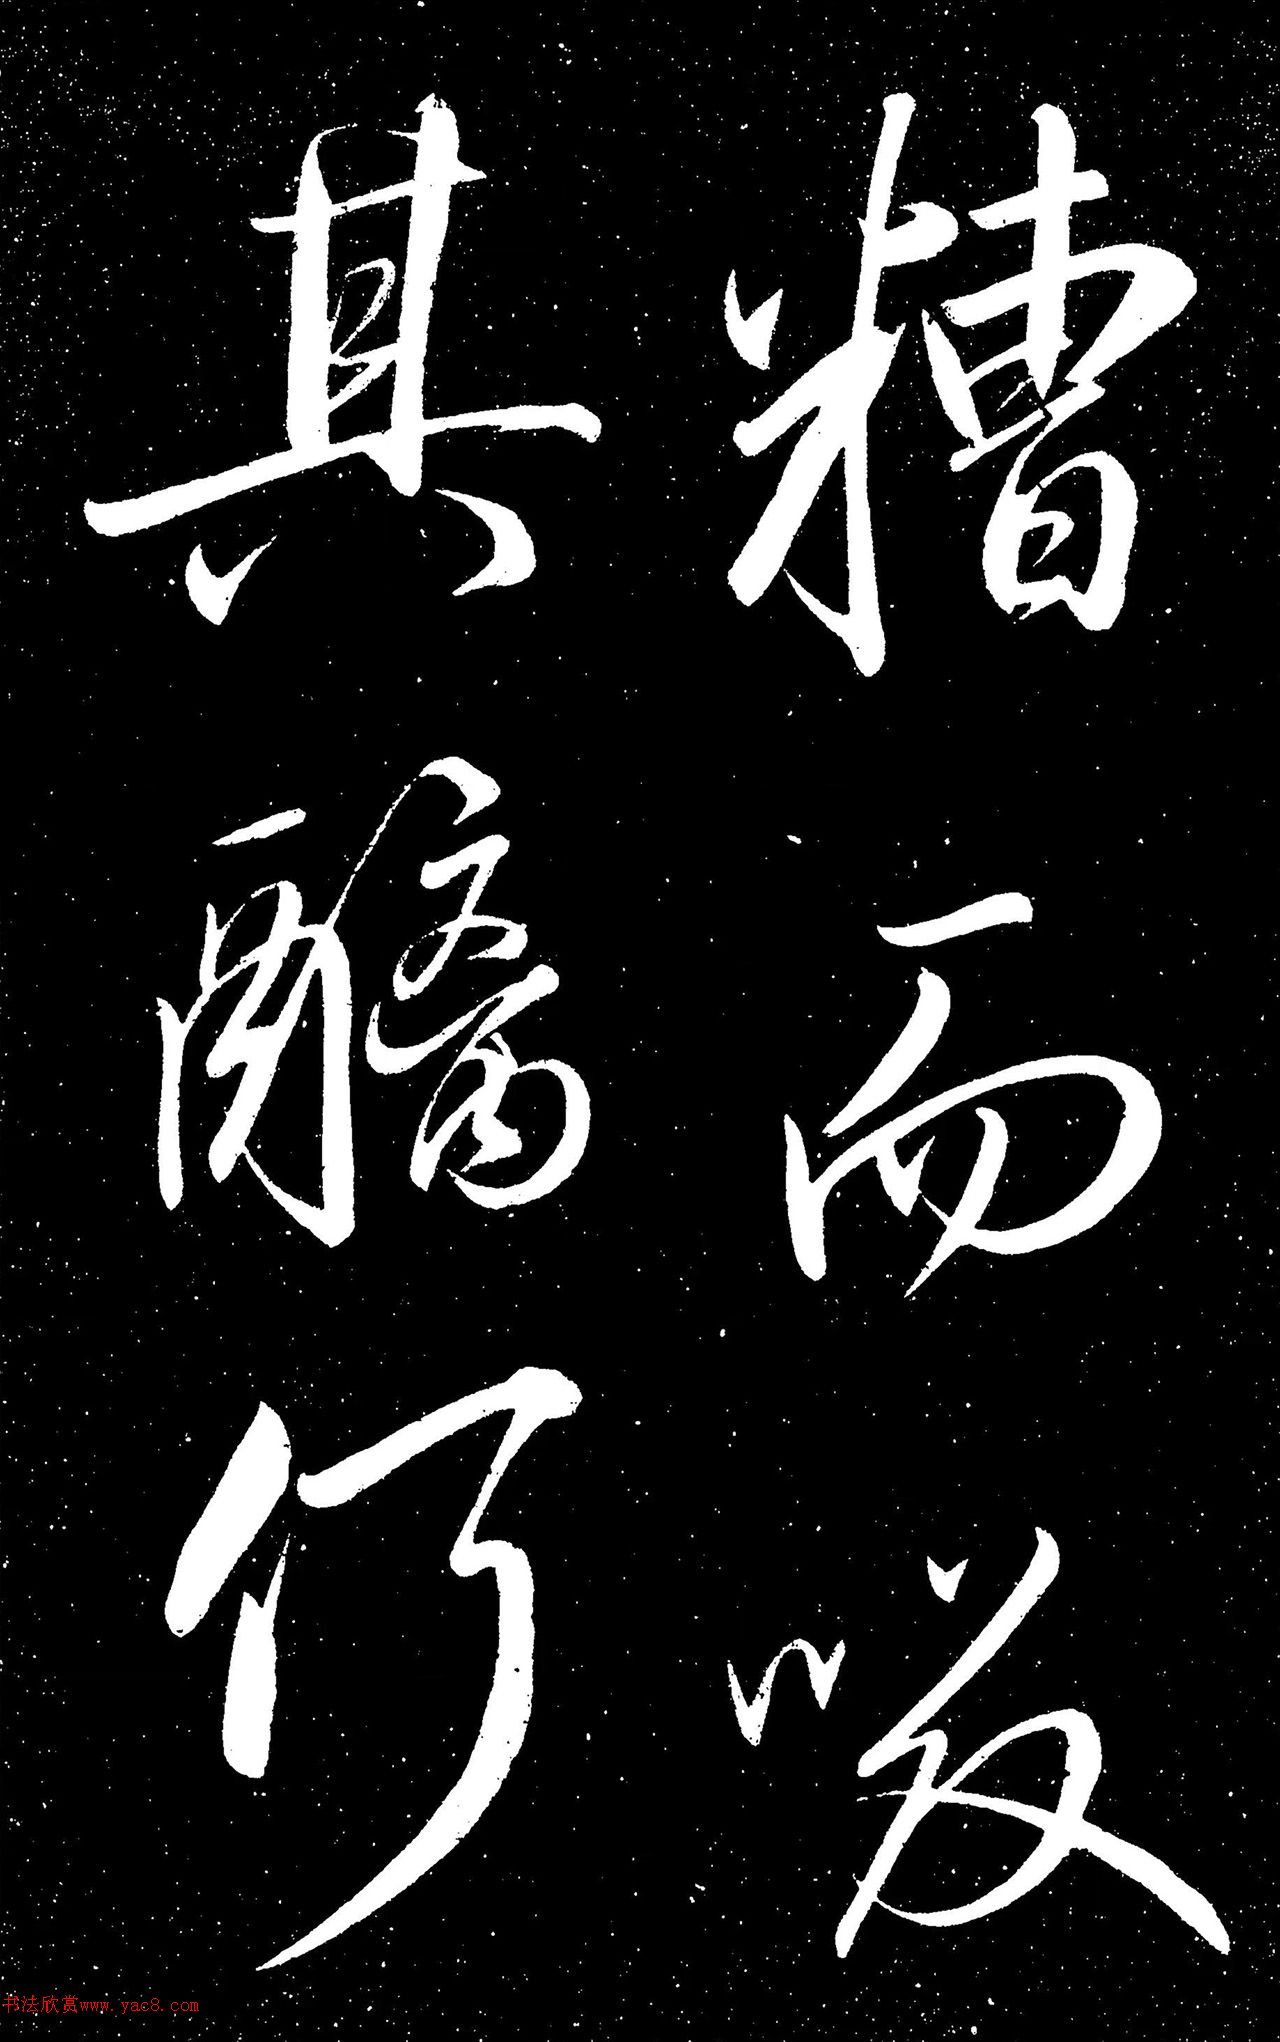 糟而啜
其醨何
书法欣赏www.yac8.com